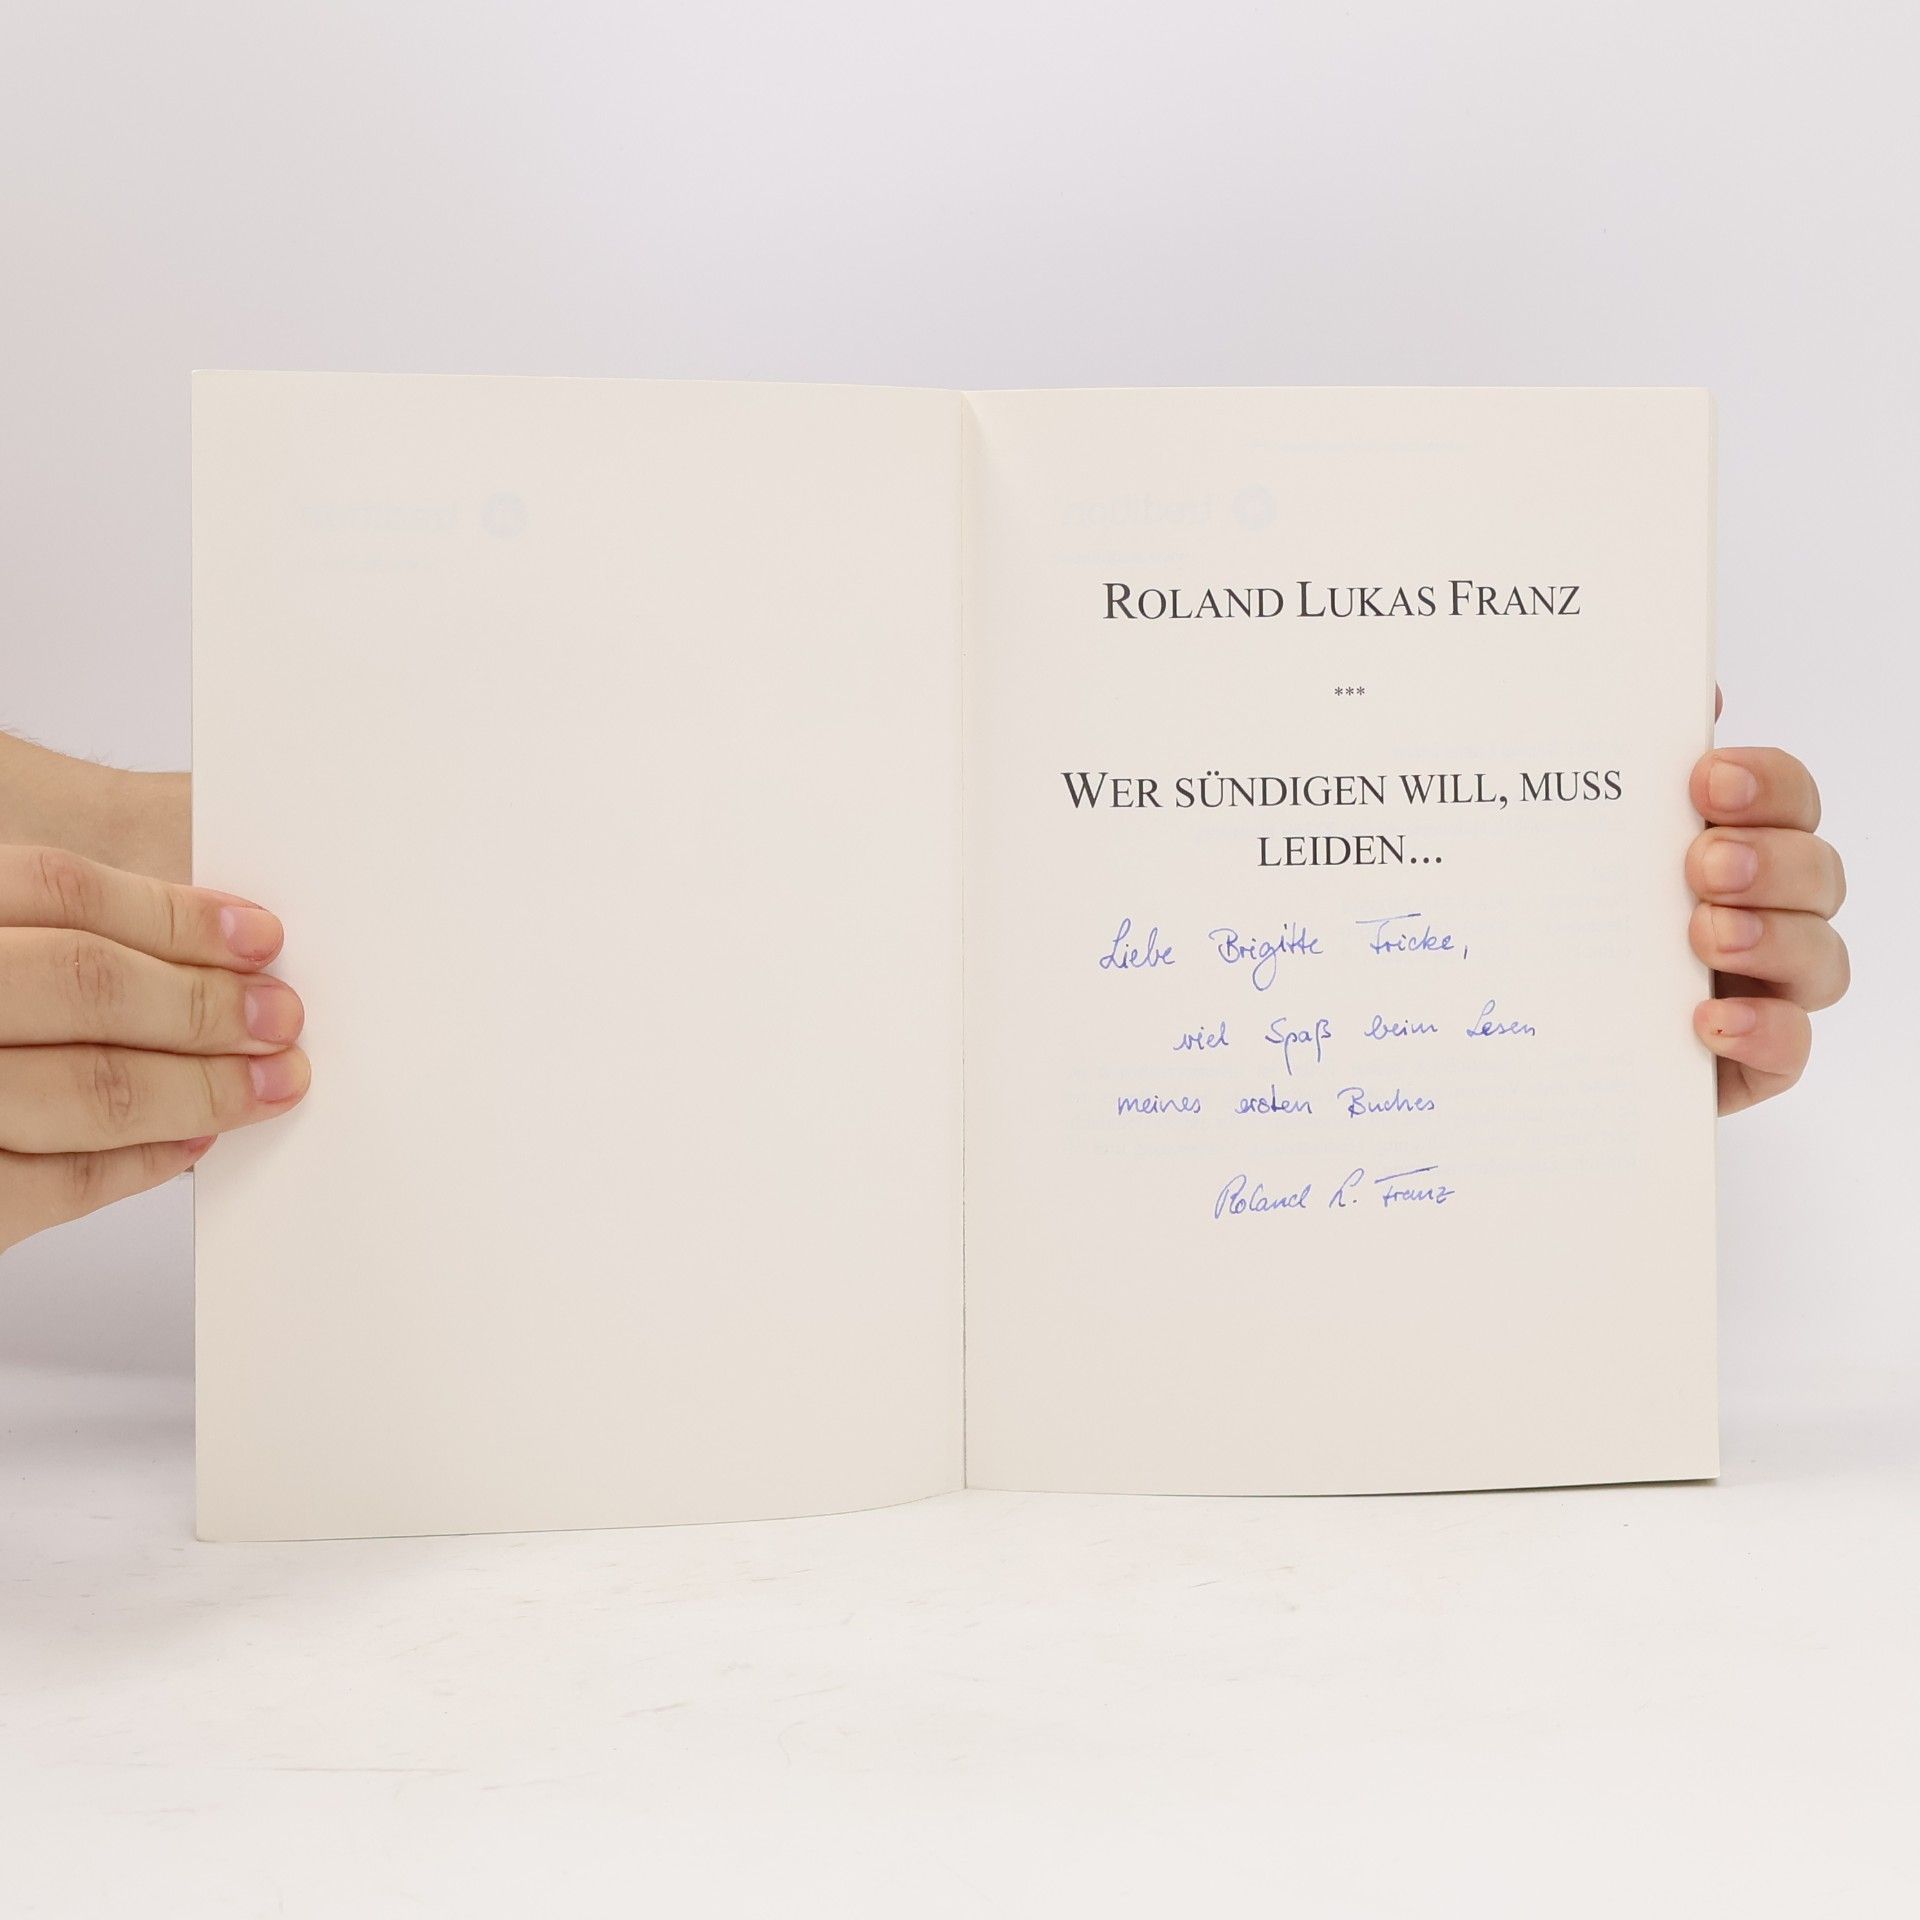 tredition
tredition
ROLAND LUKAS FRANZ
***
WER SÜNDIGEN WILL, MUSS
LEIDEN...
Liebe Brigitte Fricke,
viel Spaß beim Lesen
meines ersten Buches
Roland L. Franz